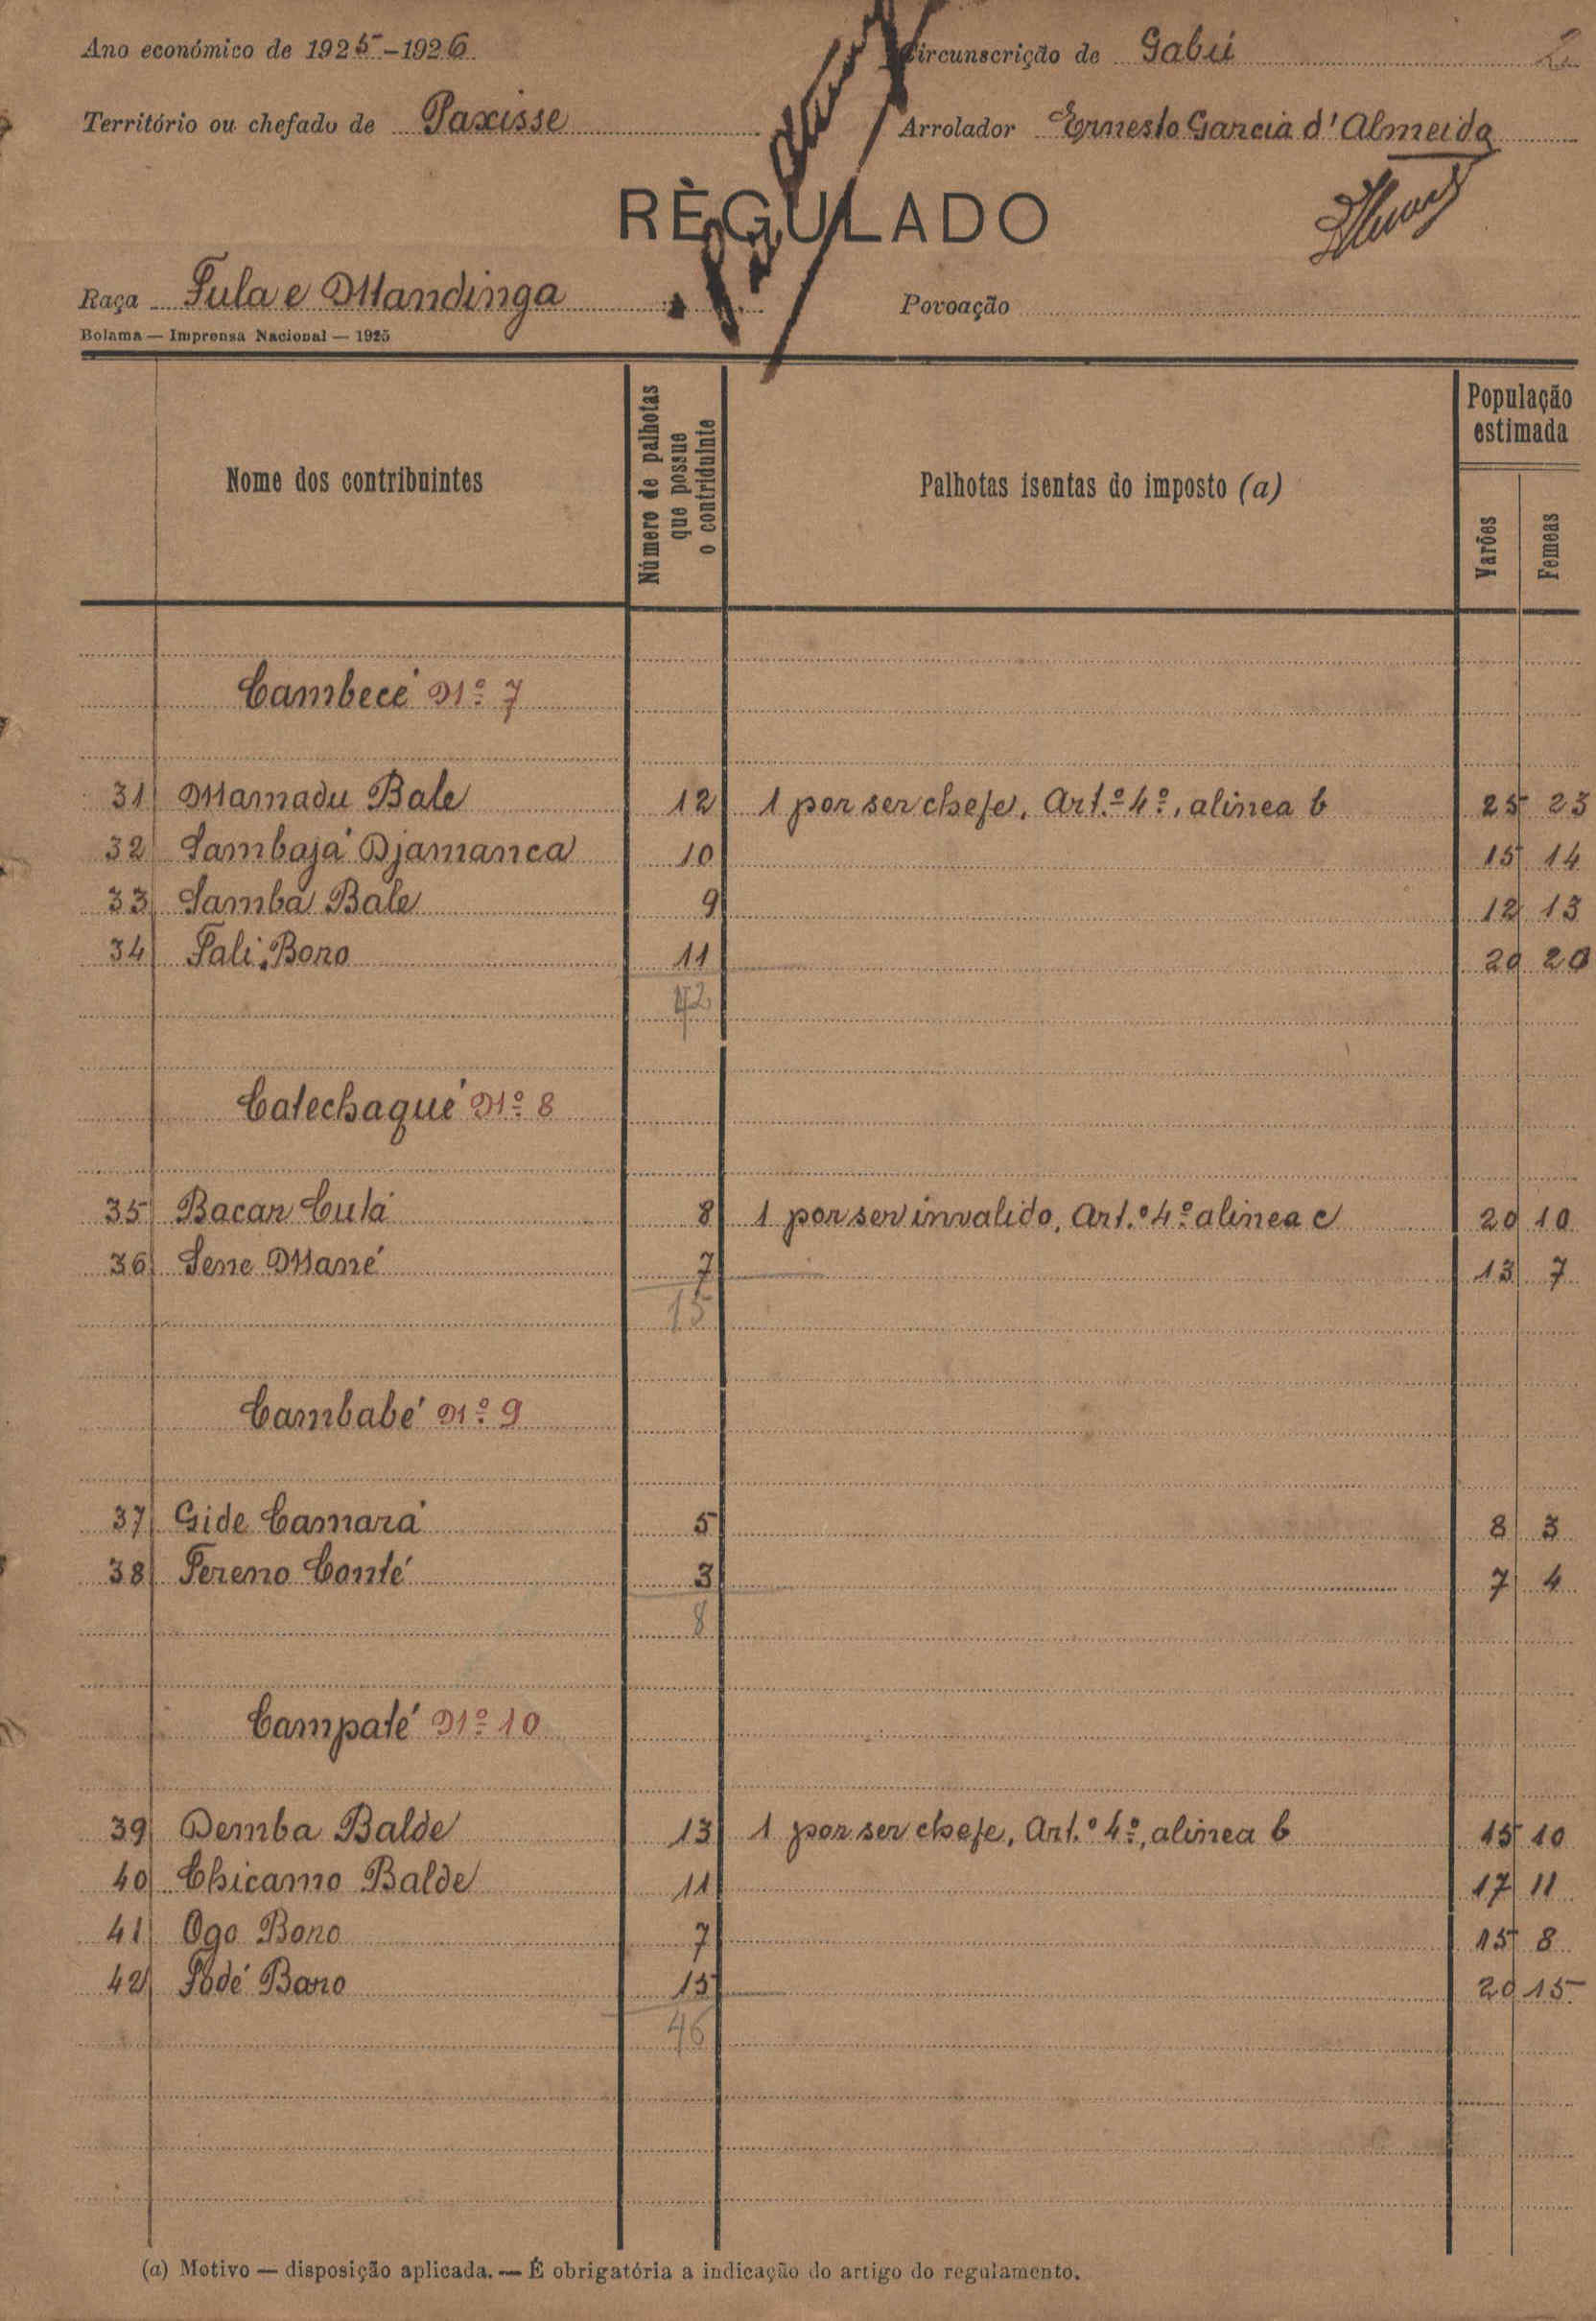 Ano económico de 1925-1926
Circunscrição de Gabú 2
Território ou chefado de Paxisse
Arrolador Ernesto Garcia d'Almeida
RÈGULADO
Raça Fula e Mandinga
Povoação
Bolama — Imprensa Nacional — 1925
Nome dos contribuintes
Número de palhotas que possue o contriduinte
Palhotas isentas do imposto (a)
População estimada
Varões
Femeas
Cambecé Nº 7
31 Mamadu Bale 12 1 por ser chefe, Art.º 4º, alinea b 25 23
32 Sambajá Djamanca 10 15 14
33 Samba Bale 9 12 13
34 Fali Bono 11 20 20
42
Catechaqué Nº 8
35 Bacar Culá 8 1 por ser invalido, Art.º 4º alinea c 20 10
36 Sene Mané 7 13 7
15
Cambabé Nº 9
37 Gide Camará 5 8 3
38 Fereno Conté 3 7 4
8
Campaté Nº 10
39 Demba Balde 13 1 por ser chefe, Art.º 4º, alinea b 15 10
40 Chicamo Balde 11 17 11
41 Ogo Bono 7 15 8
42 Fodé Bano 15 20 15
46
(a) Motivo — disposição aplicada. — É obrigatória a indicação do artigo do regulamento.